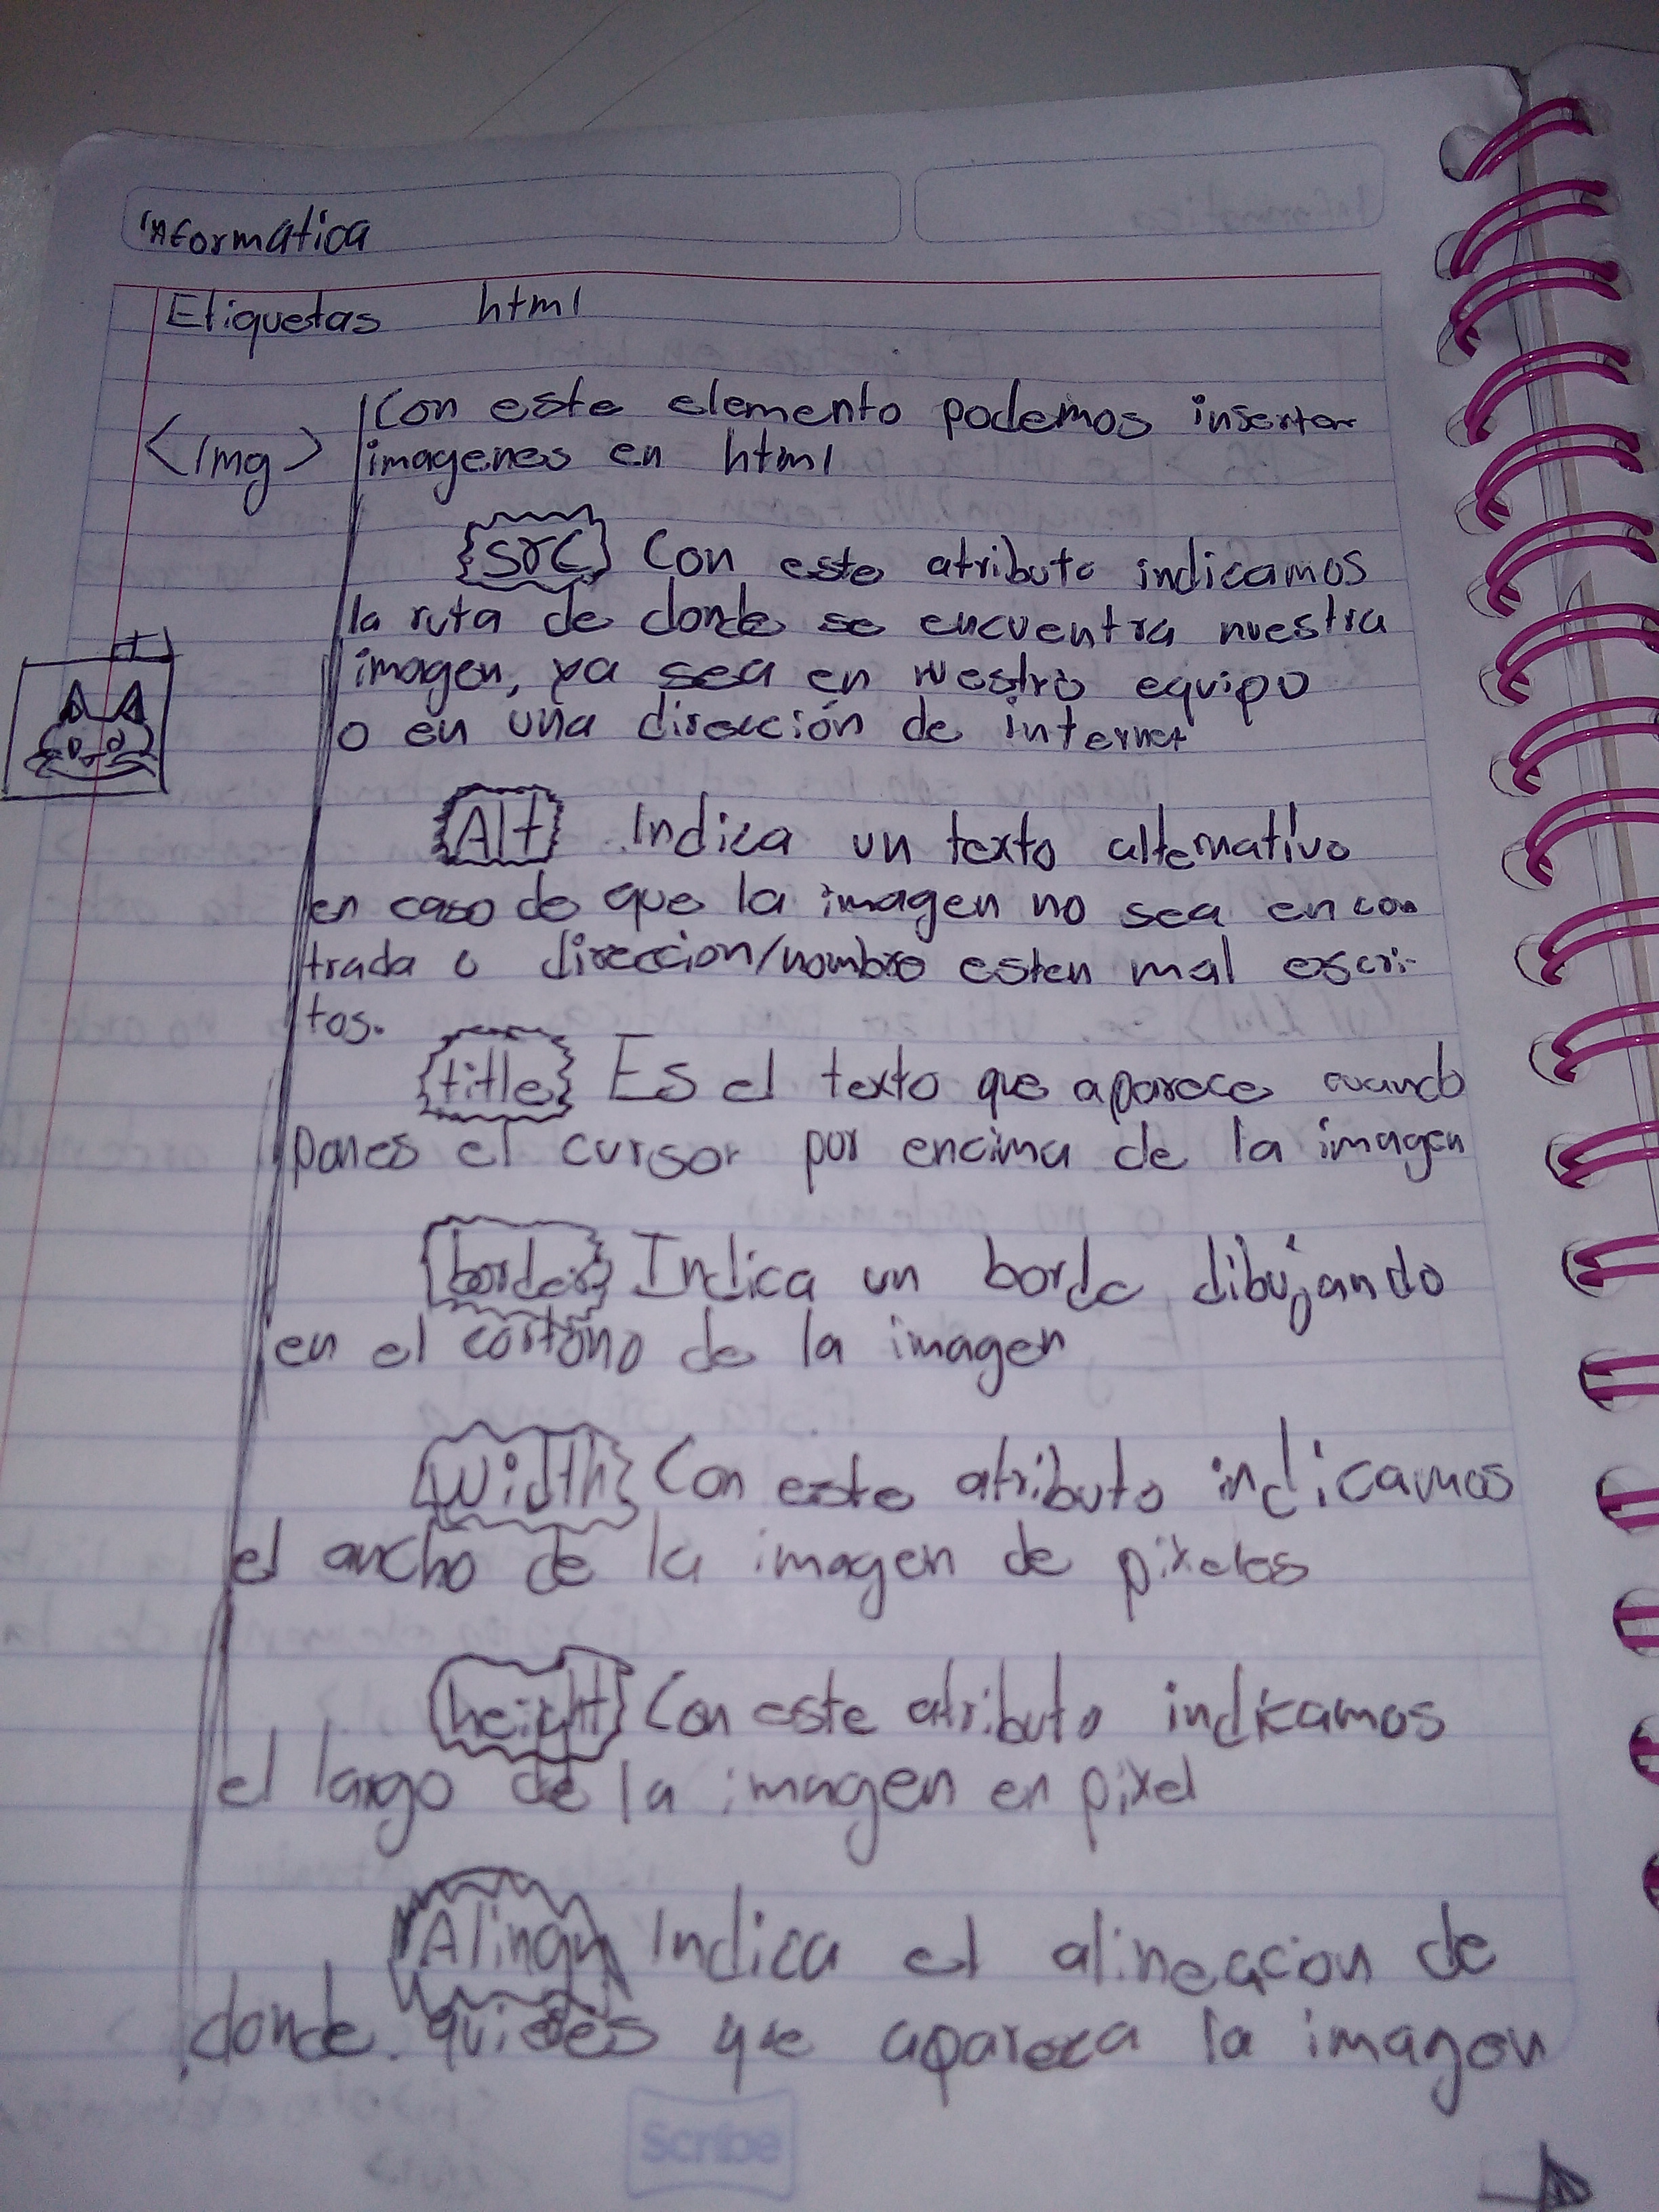 informatica
Etiquetas html
<img> Con este elemento podemos insertar
imagenes en html
src Con este atributo indicamos
la ruta de donde se encuentra nuestra
imagen, ya sea en nuestro equipo
o en una dirección de internet
Alt Indica un texto alternativo
en caso de que la imagen no sea encon
trada o direccion/nombre esten mal escri-
tos.
title Es el texto que aparece cuando
pones el cursor por encima de la imagen
border Indica un borde dibujando
en el contorno de la imagen
width Con este atributo indicamos
el ancho de la imagen de pixeles
height Con este atributo indicamos
el largo de la imagen en pixel
Alingn Indica el alineacion de
donde quieres que aparezca la imagen
Scribe